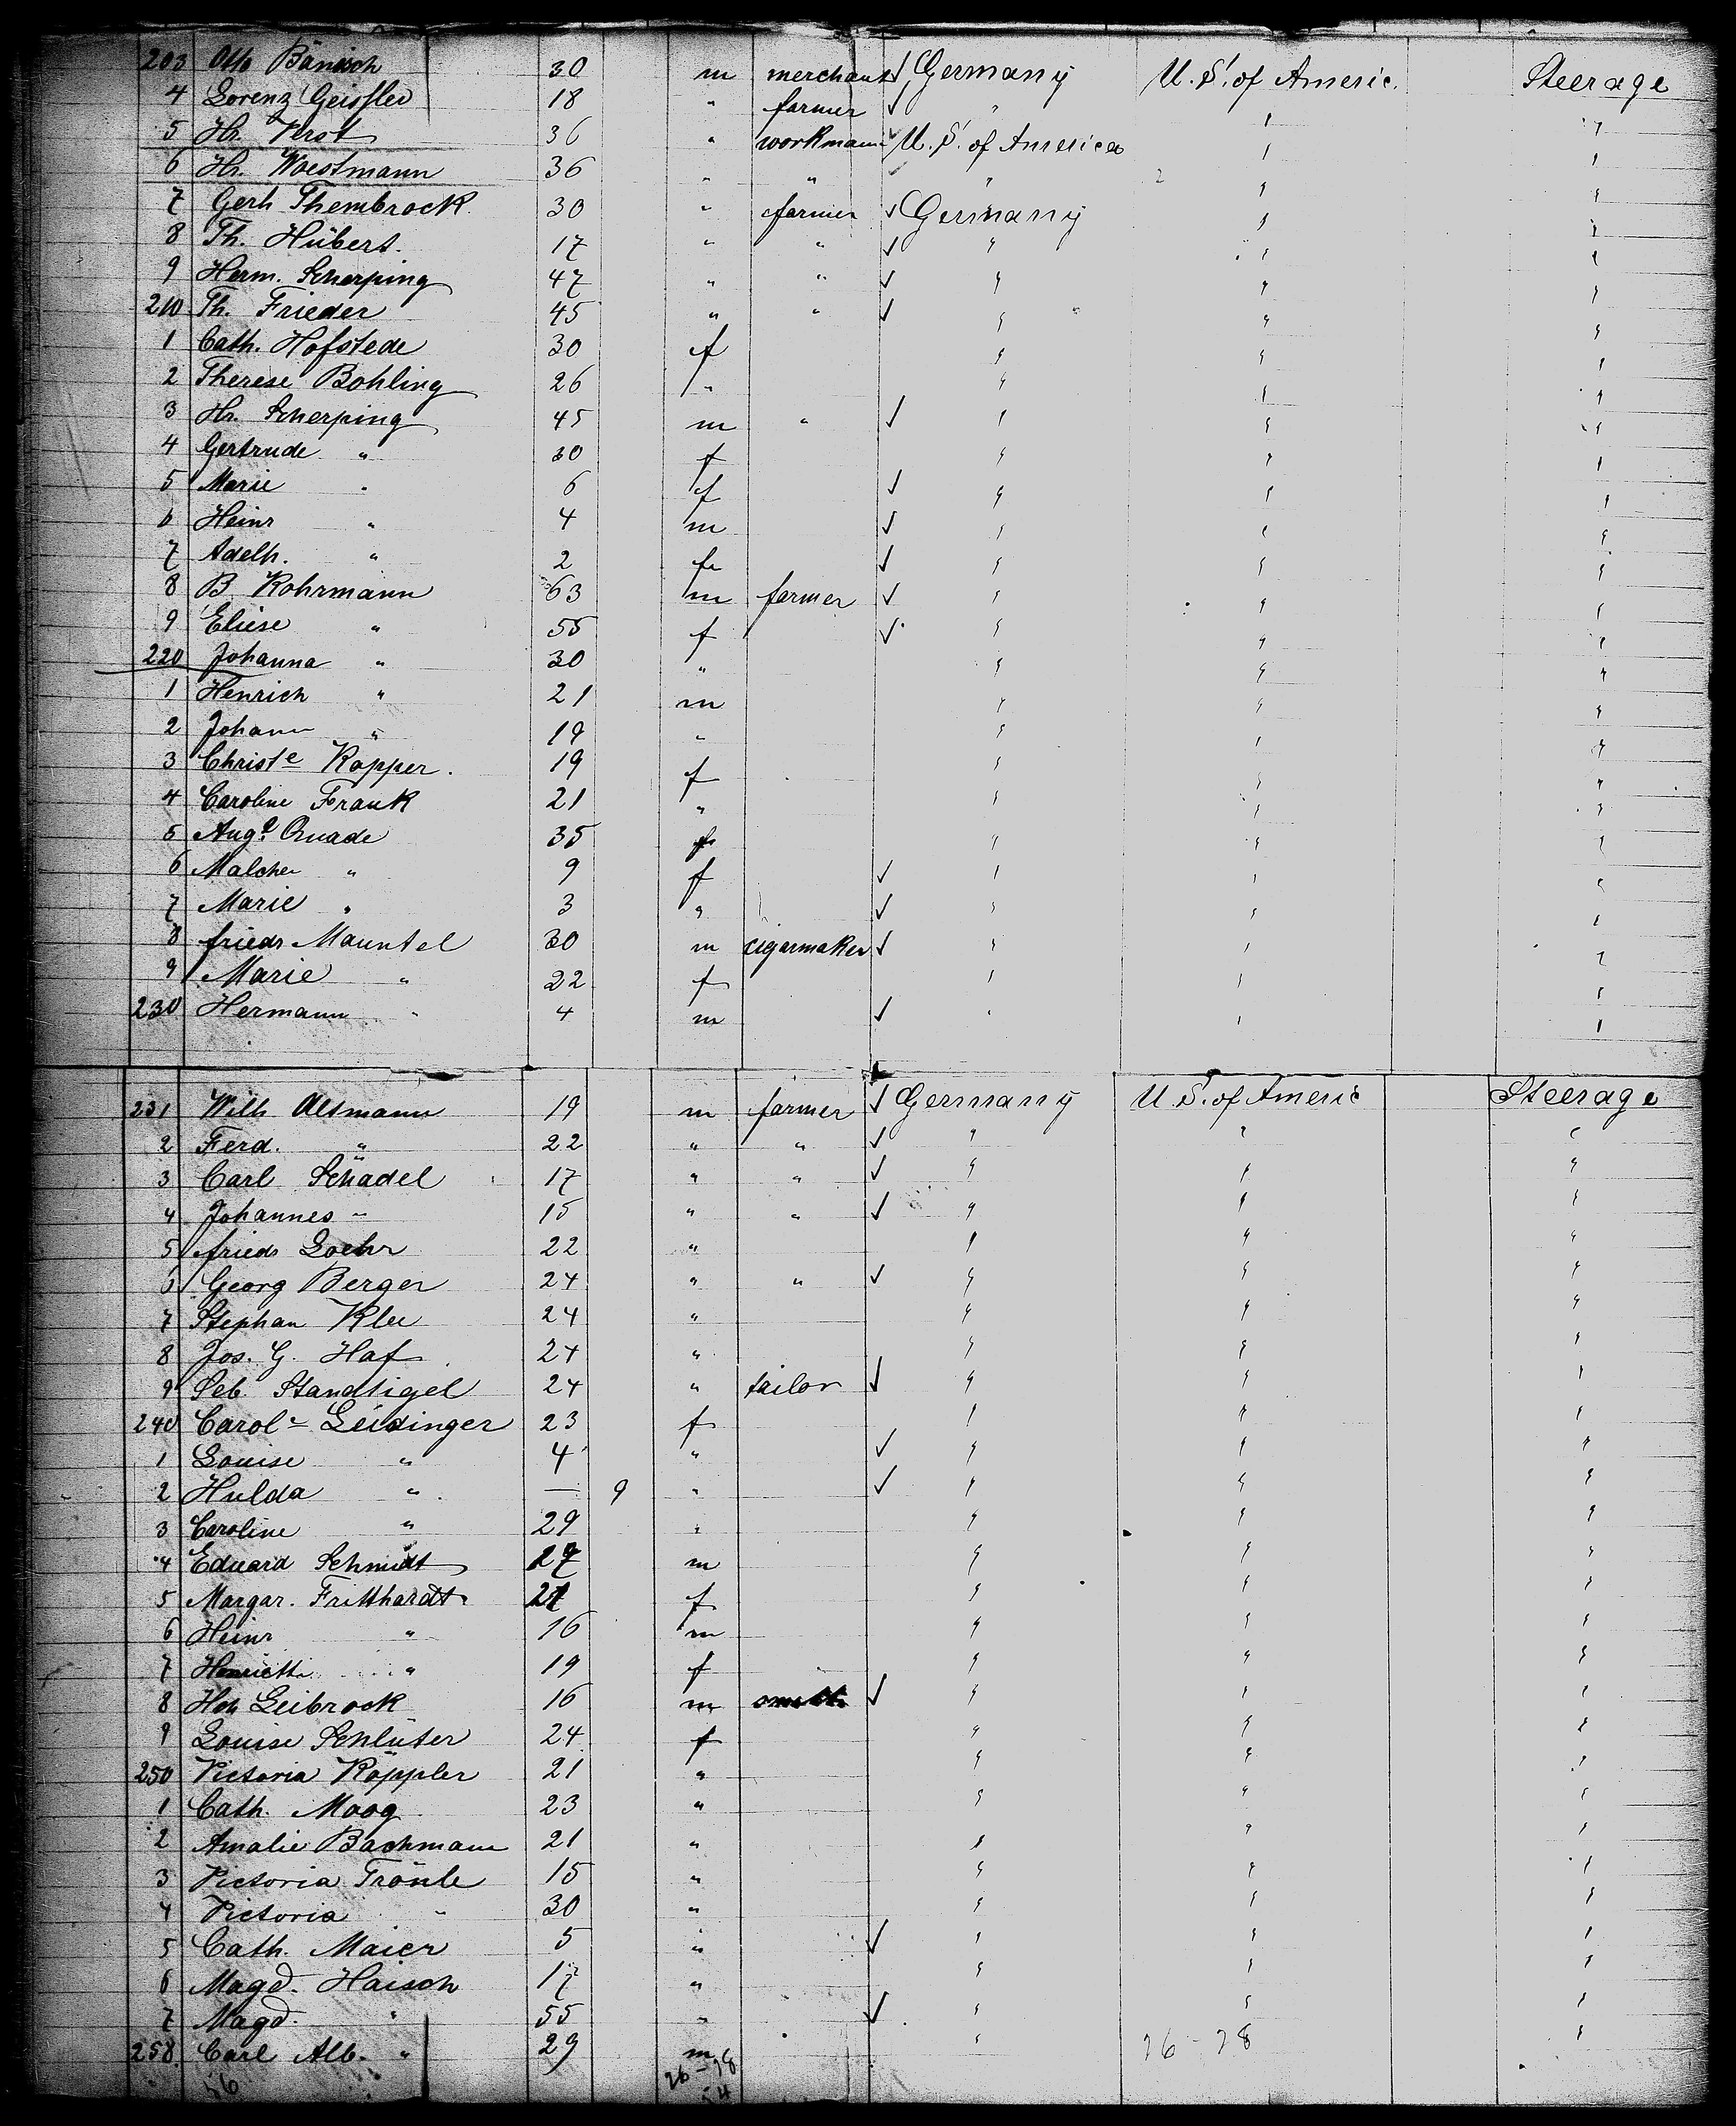 203 Otto Bänisch 30 m merchant ✓ Germany U. S. of Americ. Steerage
4 Lorenz Geissler 18 " farmer ✓ " " "
5 Hr. Verst 36 " workmann ✓ U. S. of America " "
6 Hr. Woestmann 36 " " " " "
7 Gerh Thembrock 30 " farmer ✓ Germany " "
8 Th. Hübers. 17 " " ✓ " " "
9 Herm. Scherping 47 " " ✓ " " "
210 Th. Frieder 45 " " ✓ " " "
1 Cath. Hofstede 30 f " " "
2 Therese Bohling 26 " " " "
3 Hr. Scherping 45 m " ✓ " " "
4 Gertrude " 30 f " " "
5 Marie " 6 f ✓ " " "
6 Heinr " 4 m ✓ " " "
7 Adelh. " 2 f ✓ " " "
8 B. Rohrmann 63 m farmer ✓ " " "
9 Eliese " 55 f ✓ " " "
220 Johanna " 30 " " " "
1 Henrich " 21 m " " "
2 Johann " 19 " " " "
3 Christe Kopper. 19 f " " "
4 Caroline Frank 21 " " " "
5 Auge Quade 35 f " " "
6 Malchen " 9 f ✓ " " "
7 Marie " 3 " ✓ " " "
8 friedr Mauntel 30 m cigarmaker ✓ " " "
9 Marie " 22 f " " "
230 Hermann " 4 m ✓ " " "
231 Wilh Altmann 19 m farmer ✓ Germany U. S. of Americ Steerage
2 Ferd. " 22 " " ✓ " " "
3 Carl Schädel 17 " " ✓ " " "
4 Johannes " 15 " " ✓ " " "
5 friedr Loehr 22 " " " "
6 Georg Berger 24 " " ✓ " " "
7 Stephan Klee 24 " " " "
8 Jos. G. Haf 24 " " " "
9 Seb. Standtigel 24 " tailor ✓ " " "
240 Carol- Leidinger 23 f " " "
1 Louise " 4 " ✓ " " "
2 Hulda " — 9 " ✓ " " "
3 Caroline " 29 " " " "
4 Eduard Schmidt 27 m " " "
5 Margar. Fritthardt 21 f " " "
6 Heinr " 16 m " " "
7 Henriette " 19 f " " "
8 Hch Leibrock 16 m smith ✓ " " "
9 Louise Schlüter 24 f " " "
250 Victoria Köppler 21 " " " "
1 Cath. Moog 23 " " " "
2 Amalie Bachmann 21 " " " "
3 Victoria Trönle 15 " " " "
4 Victoria " 30 " " " "
5 Cath. Maier 5 " ✓ " " "
6 Magd. Haisch 17 " " " "
7 Magd. " 55 " ✓ " " "
258 Carl Alb. " 29 m " 26-28 "
56 26-28
54